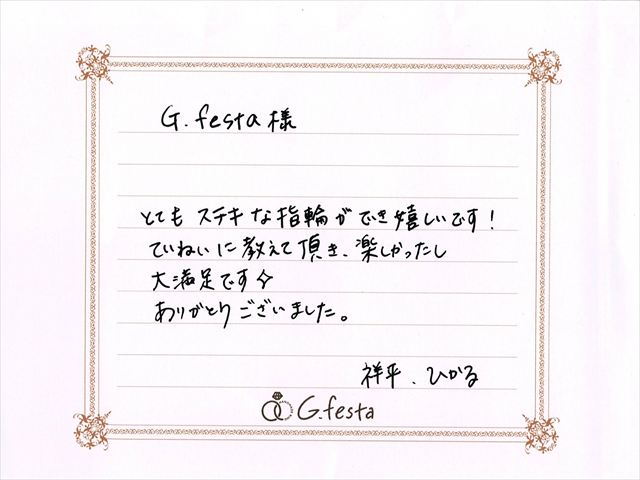 G.festa様
とてもステキな指輪ができ嬉しいです!
ていねいに教えて頂き、楽しかったし
大満足です☆
ありがとうございました。
祥平、ひかる
G.festa